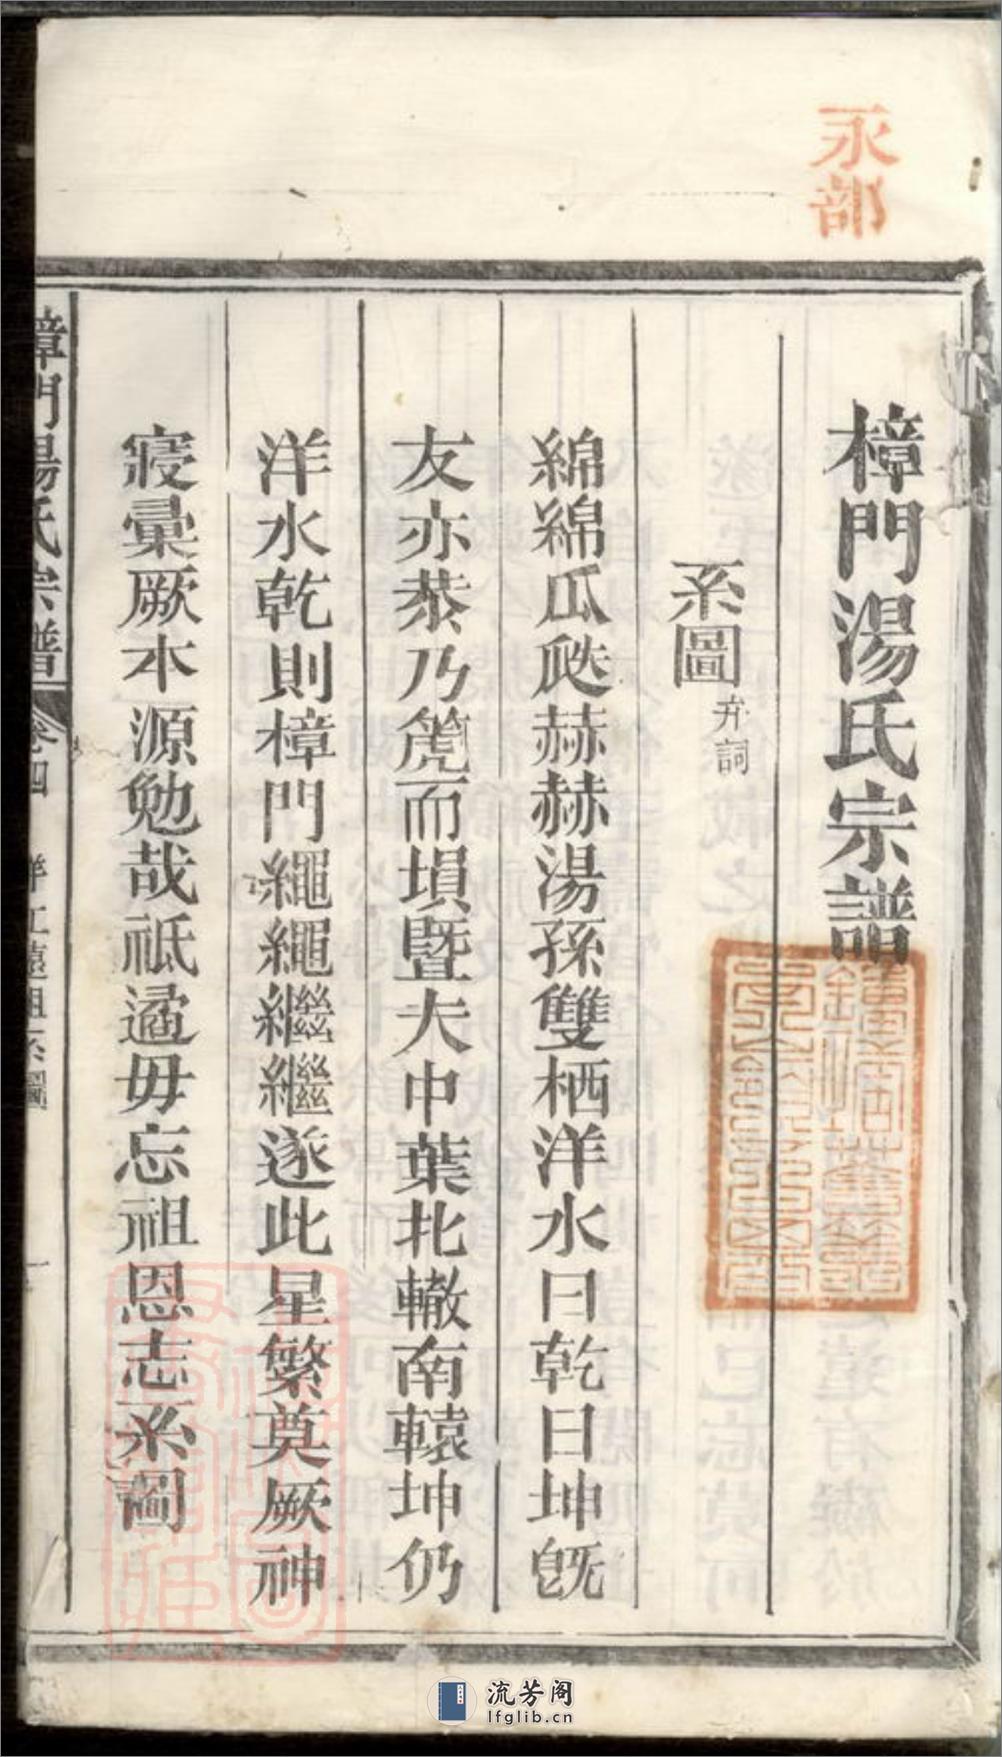 永部
樟門湯氏宗譜
系圖 弁詞
綿綿瓜瓞赫赫湯孫雙栖洋水曰乾曰坤旣
友亦恭乃箎而塤暨夫中葉北轍南轅坤仍
洋水乾則樟門繩繩繼繼遂此星繁奠厥神
寢彙厥本源勉哉祗遹毋忘祖恩志系圖
樟門湯氏宗譜 卷四 洋江遠祖系圖 一
流芳阁
lfglib.cn